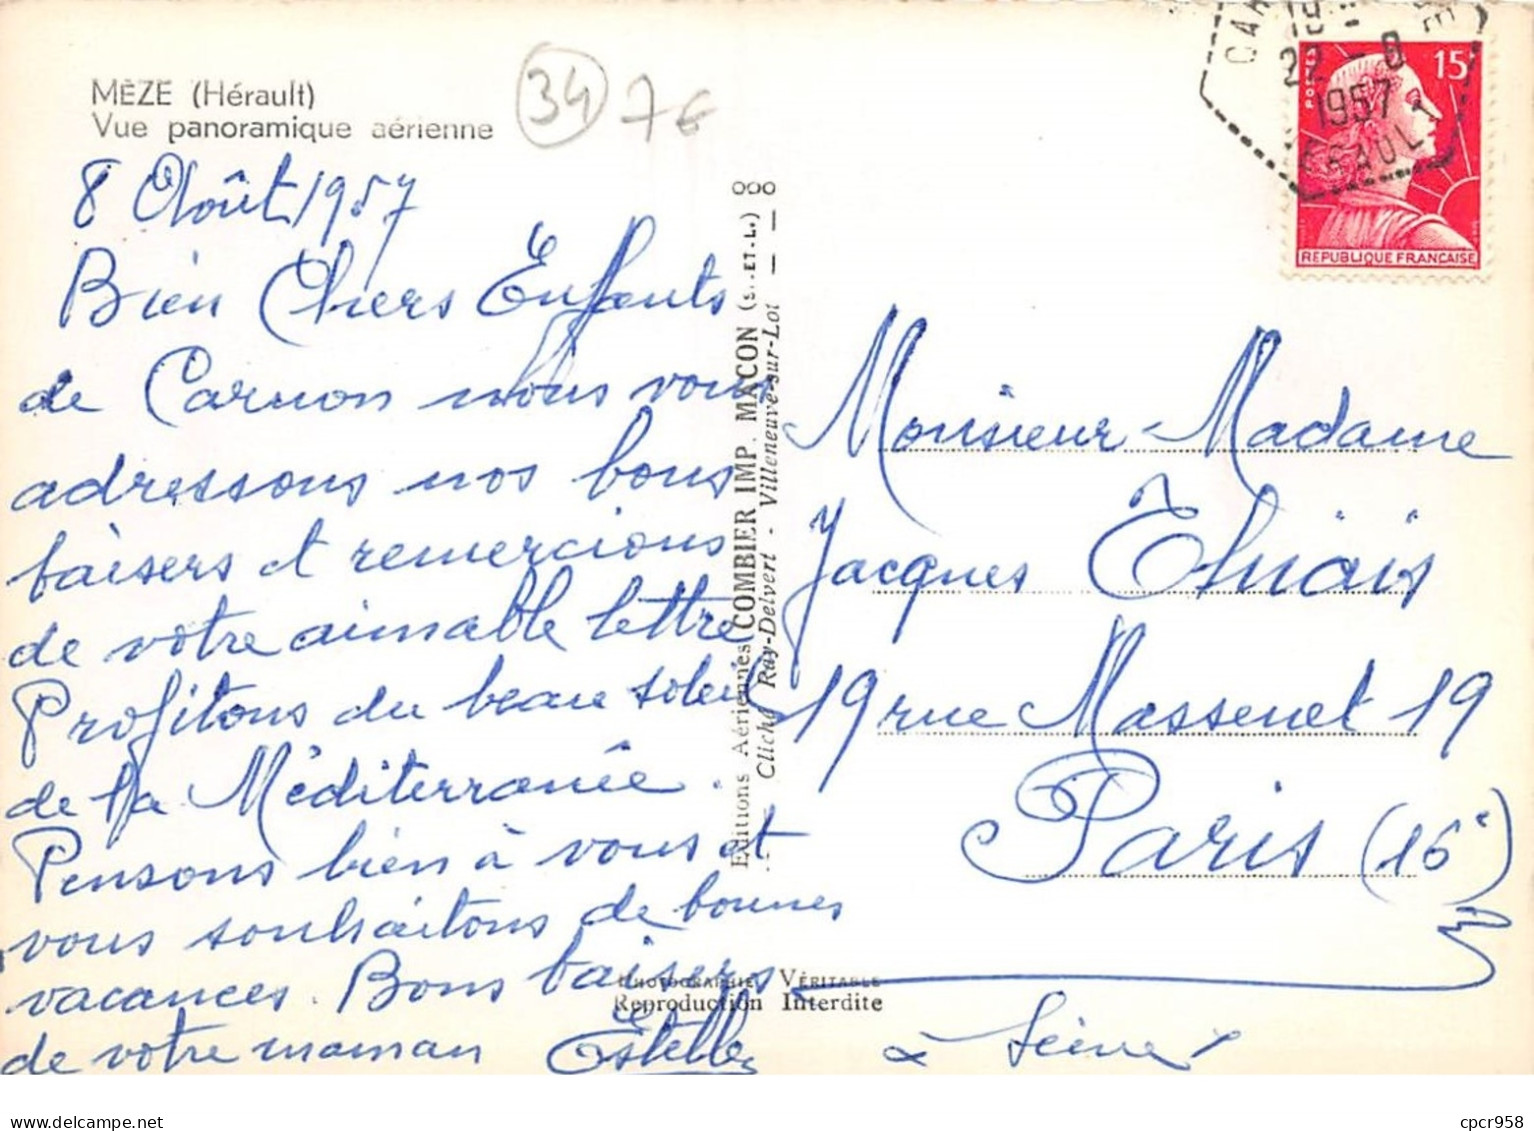 MÈZE (Hérault)
Vue panoramique aérienne
34
7€
8 Août 1957
Bien Chers Enfants
de Carnon nous vous
adressons nos bons
baisers et remercions
de votre aimable lettre
Profitons du beau soleil
de la Méditerranée.
Pensons bien à vous et
vous souhaitons de bonnes
vacances. Bons baisers
de votre maman Estelle
000
Editions Aériennes COMBIER IMP. MACON (S.-ET-L.)
Cliché Ray-Delvert - Villeneuve-sur-Lot
PHOTOGRAPHIE VÉRITABLE
Reproduction Interdite
19
22 - 8
1957
POSTES
15F
RÉPUBLIQUE FRANÇAISE
Monsieur - Madame
Jacques
19 rue Massenet 19
Paris (16e)
Seine
cpcr958